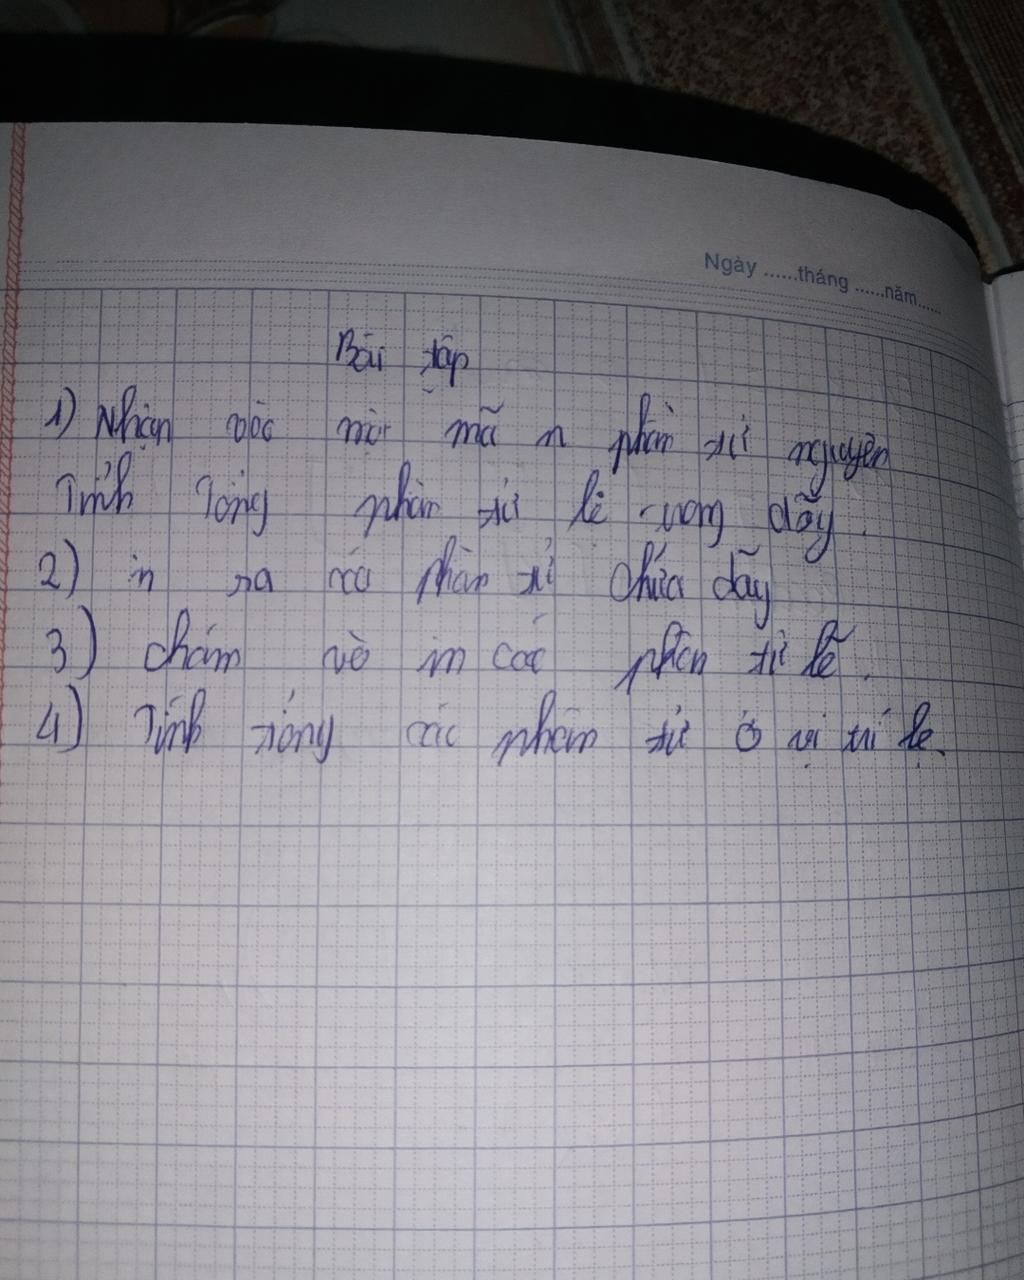 Ngày ......tháng ......năm......
Bài tập
1) Nhận vào mà n phần tử nguyên
Tính Tổng phần tử lẻ trong dãy.
2) in ra các phần tử chứa dãy
3) chấm và in các phần tử lẽ.
4) Tính tổng các phần tử ở vị trí lẻ.